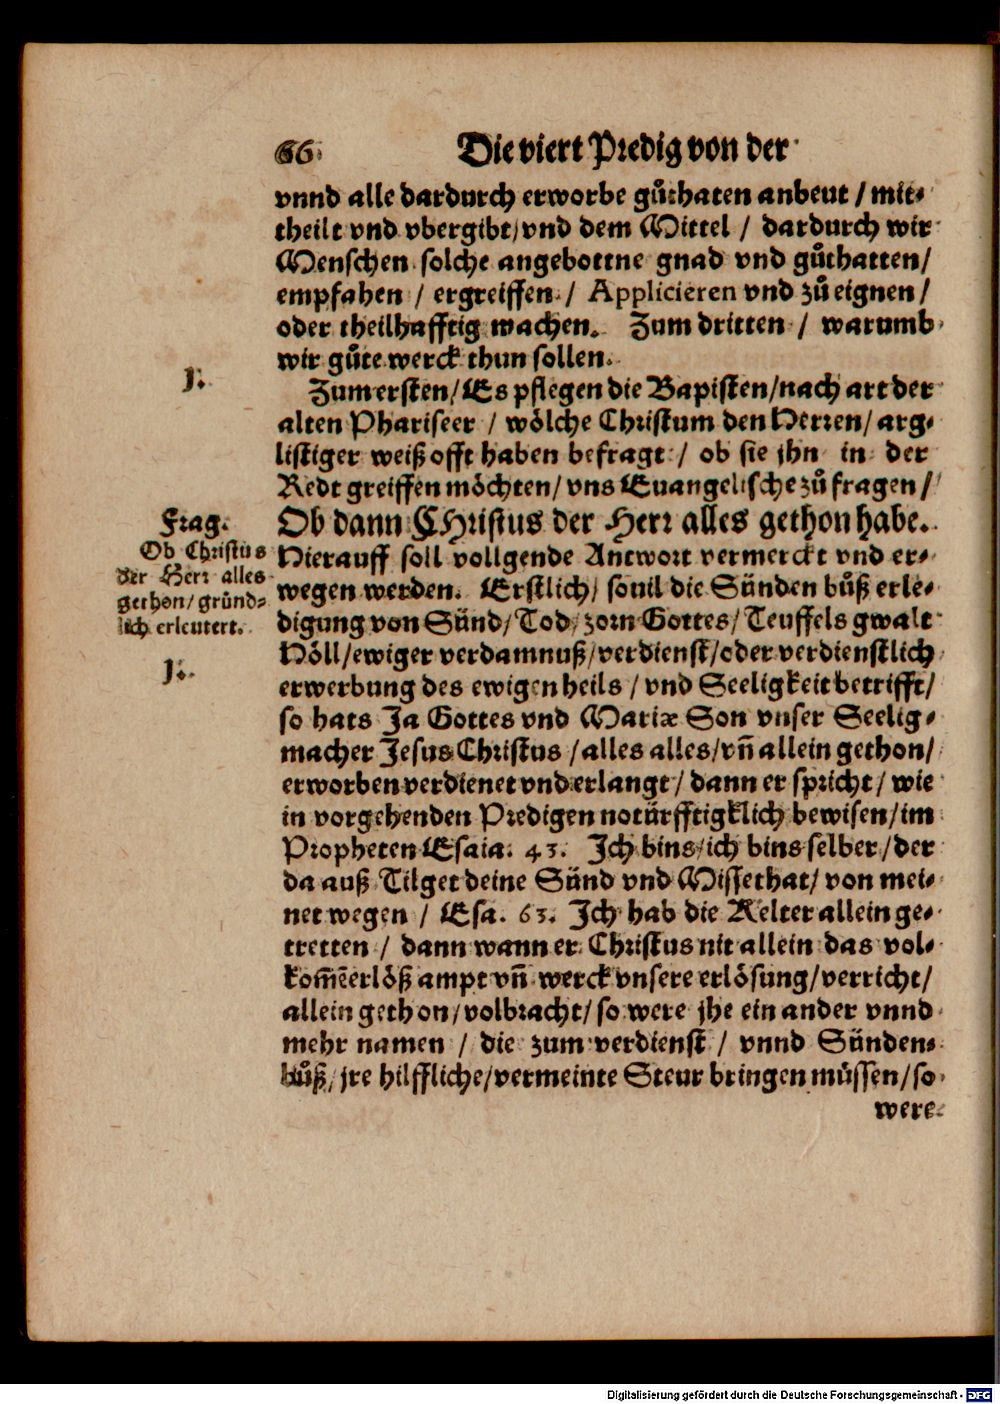 66 Die viert Predig von der
vnnd alle dardurch erworbe gůthaten anbeut / mit⸗
theilt vnd vbergibt / vnd dem Mittel / dardurch wir
Menschen solche angebottne gnad vnd gůthatten /
empfahen / ergreiffen / Applicieren vnd zů eignen /
oder theilhafftig machen. Zum dritten / warumb
wir gůte werck thun sollen.
1.
Zum ersten / Es pflegen die Bapisten / nach art der
alten Phariseer / wölche Christum den Herren / arg⸗
listiger weiß offt haben befragt / ob sie jhn in der
Redt greiffen möchten / vns Euangelische zů fragen /
Frag.
Ob Christus
der Herr alles
gethon / gründ⸗
lich erleutert.
Ob dann CHristus der Herr alles gethon habe.
Hierauff soll vollgende Antwort vermerckt vnd er⸗
wegen werden. Erstlich / souil die Sünden bůß erle⸗
digung von Sünd / Tod / zorn Gottes / Teuffels gwalt
1.
Höll / ewiger verdamnuß / verdienst / oder verdienstlich
erwerbung des ewigen heils / vnd Seeligkeit betrifft /
so hats Ja Gottes vnd Mariæ Son vnser Seelig⸗
macher Jesus Christus / alles alles / vñ allein gethon /
erworben verdienet vnd erlangt / dann er spricht / wie
in vorgehenden Predigen notürfftigklich bewisen / im
Propheten Esaia. 43. Jch bins / ich bins selber / der
da auß Tilget deine Sünd vnd Missethat / von mei⸗
net wegen / Esa. 63. Jch hab die Kelter allein ge⸗
tretten / dann wann er Christus nit allein das vol⸗
kom̃ẽ erlöß ampt vñ werck vnsere erlösung / verricht /
allein gethon / volbracht / so were jhe ein ander vnnd
mehr namen / die zum verdienst / vnnd Sünden⸗
bůß / jre hilffliche / vermeinte Steur bringen müssen / so
were
Digitalisierung gefördert durch die Deutsche Forschungsgemeinschaft - DFG